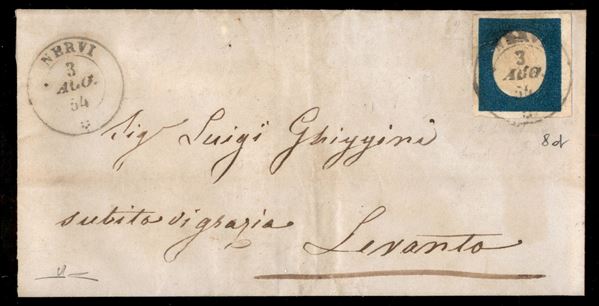 NERVI
3
AGO.
54
NERVI
3
AGO.
54
8d
Sig.r Luigi Ghiggini
subito di grazia
Levanto